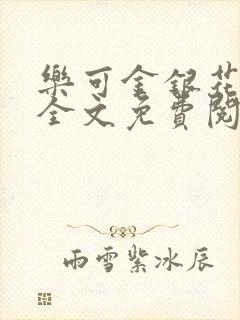 樂可金銀花
全文免費閱
雨雪紫冰辰